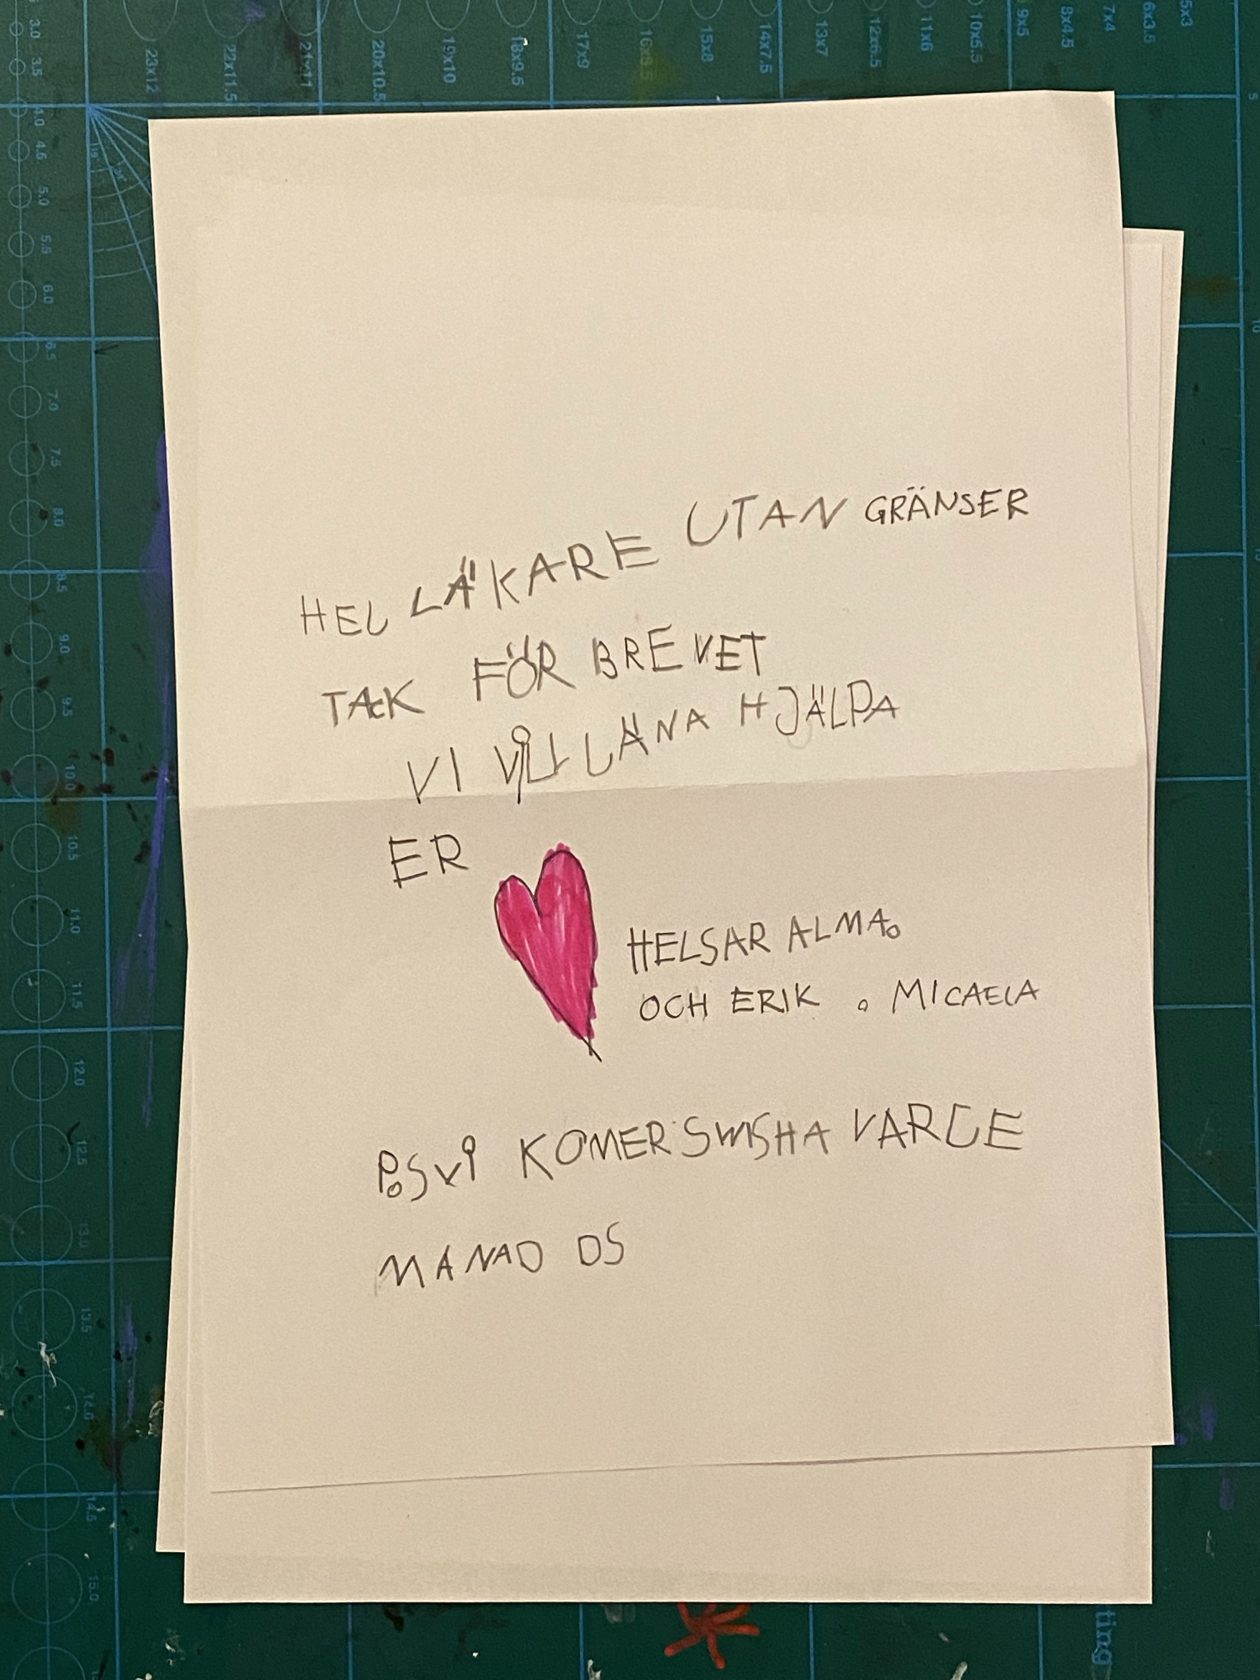 23x12 22x11.5 21x11 20x10.5 19x10 18x9.5 17x9 16x8.5 15x8 14x7.5 13x7 12x6.5 11x6 10x5.5 9x5 8x4.5 7x4 6x3.5 5x3
3.0
3.5
4.0
4.5
5.0
5.5
6.0
6.5
7.0
7.5
8.0
8.5
9.0
9.5
10.0
10.5
11.0
11.5
12.0
12.5
13.0
13.5
14.5
15.0
5
10
HEJ LÄKARE UTAN GRÄNSER
TACK FÖR BREVET
VI VILL LÄNA HJÄLPA
ER
HELSAR ALMA
OCH ERIK o MICAELA
PS VI KOMER SWISHA VARGE
MANAD DS
ting